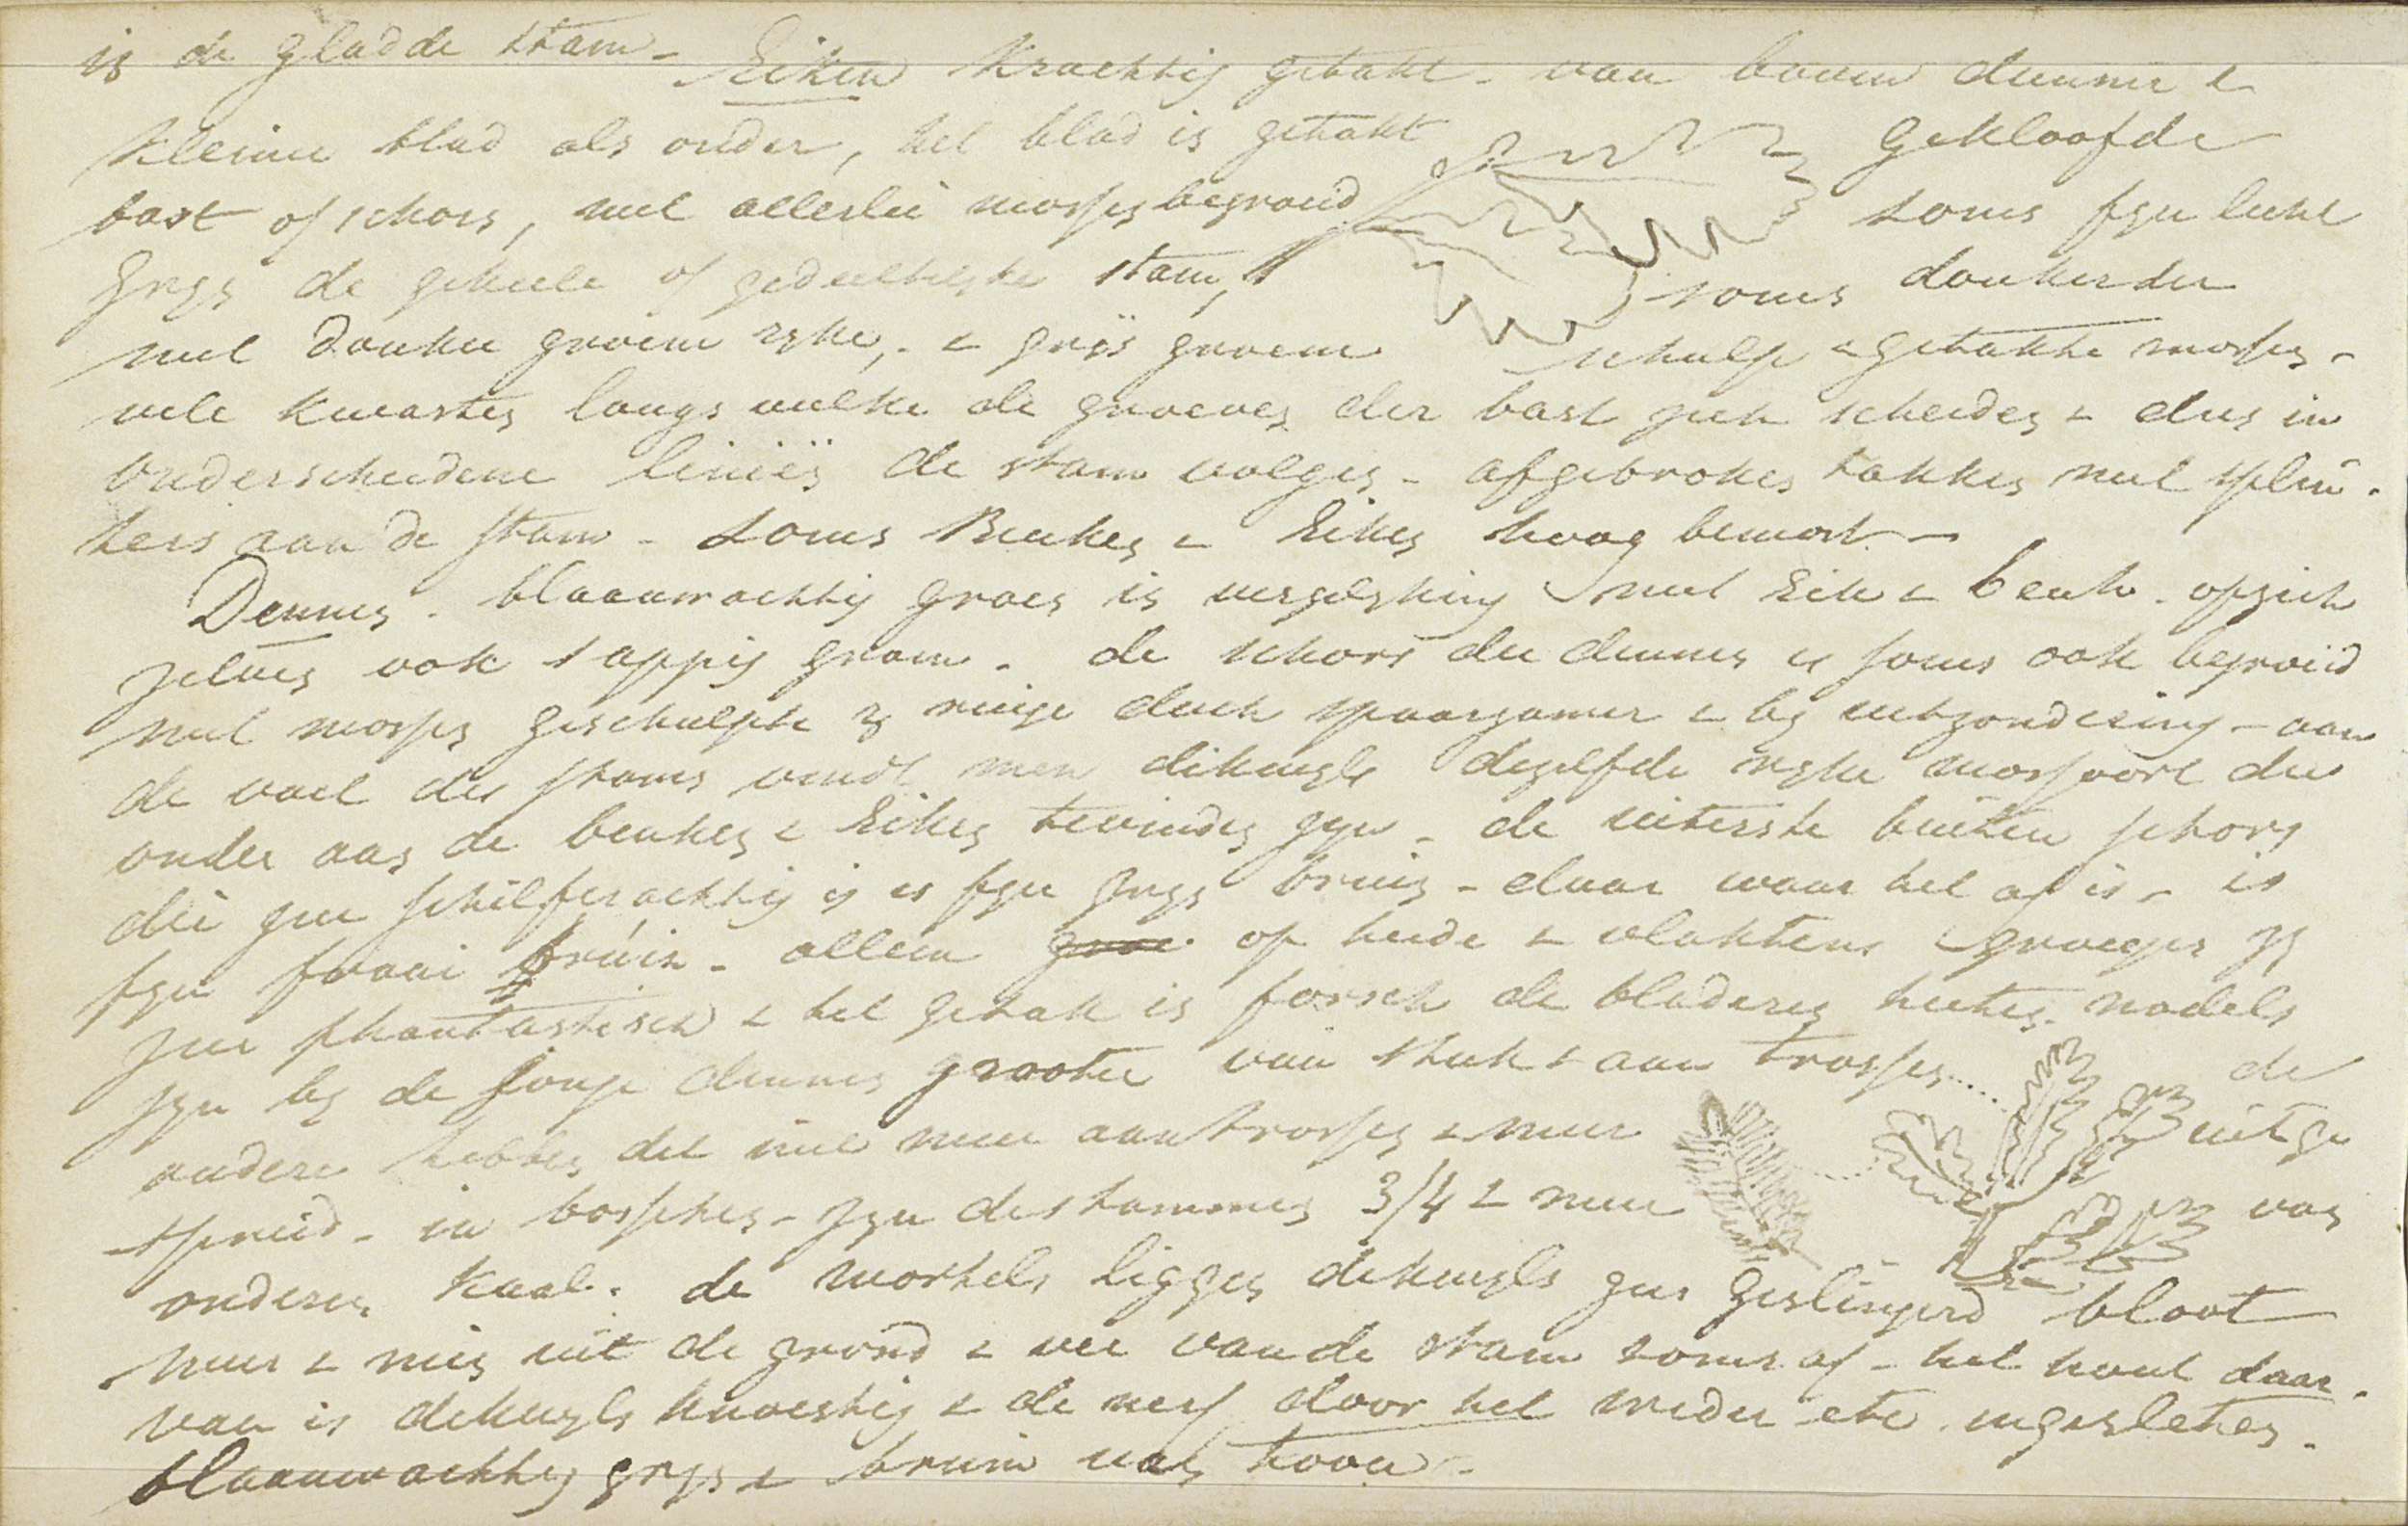 is de gladde stam - Eiken krachtig getakt - van boven dunner &
kleiner blad als onder, het blad is getakt Gekloofde
bast of schors, met allerlei mosses begroeid soms fyn licht
grys de geheele of gedeeltelyke stam, soms donkerder
met donker groene ryke, - & grijs groene schulp & getakte mosses -
vele kwasten langs welke de groeven der bast zich scheiden & dus in
onderscheidene liniën de stam volgen - afgebroken takken met splin-
ters aan de stam - Soms Beuken & Eiken hoog bemost -
Dennen - blaauwachtig groen in vergelyking met Eik & beuk - op zich
zelven ook sappig groen - de schors der dennen is soms ook begroeid
met mosses geschulpte & ruige doch spaarzamer & by uitzondering - aan
de voet der stams vindt men dikwyls dezelfde ryke mossoort die
onder aan de beuken & Eiken te vinden zyn - de uiterste buiten schors
die zeer schilferachtig is is fyn grys bruin - daar waar het af is - is
fyn fraai bruin - alleen op heide & vlaktens groeyen zy
zeer phantastisch & het getak is forsch de bladeren heeten nadels
zyn by de jonge dennen grooter van stuk & aan trossen.... de
andere hebben dit niet meer aan trossen & meer uitge
spreid - in bosschen - zyn de stammen 3/4 & meer van
onderen kaal. de wortels liggen dikwyls zeer geslingerd bloot
meer & min uit de grond & ver van de stam soms af - het hout daar-
van is dikwyls knoestig & de nerf door het weder etc ingesleten -
blaauwachtig grys & bruin van toon -